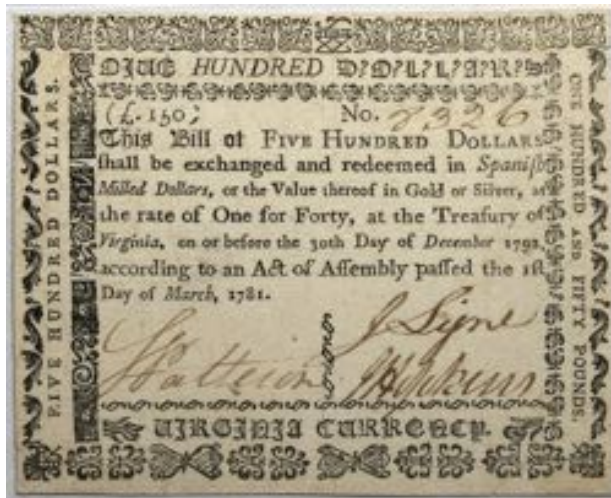 FIVE HUNDRED DOLLARS
(£.150)
No. 2326
This Bill of FIVE HUNDRED DOLLARS
ſhall be exchanged and redeemed in Spaniſh
Milled Dollars, or the Value thereof in Gold or Silver, at
the rate of One for Forty, at the Treaſury of
Virginia, on or before the 30th Day of December 1792,
according to an Act of Aſſembly paſſed the 1ſt
Day of March, 1781.
J Lyne
J Hopkins
VIRGINIA CURRENCY.
FIVE HUNDRED DOLLARS.
ONE HUNDRED AND FIFTY POUNDS.